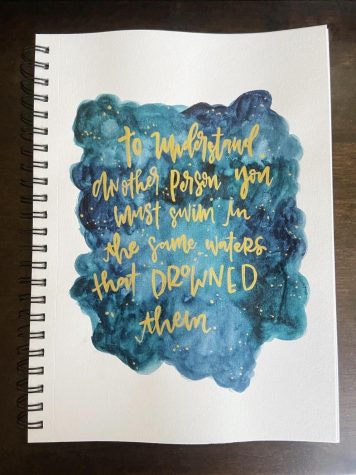 to understand
another person you
must swim in
the same waters
that DROWNED
them